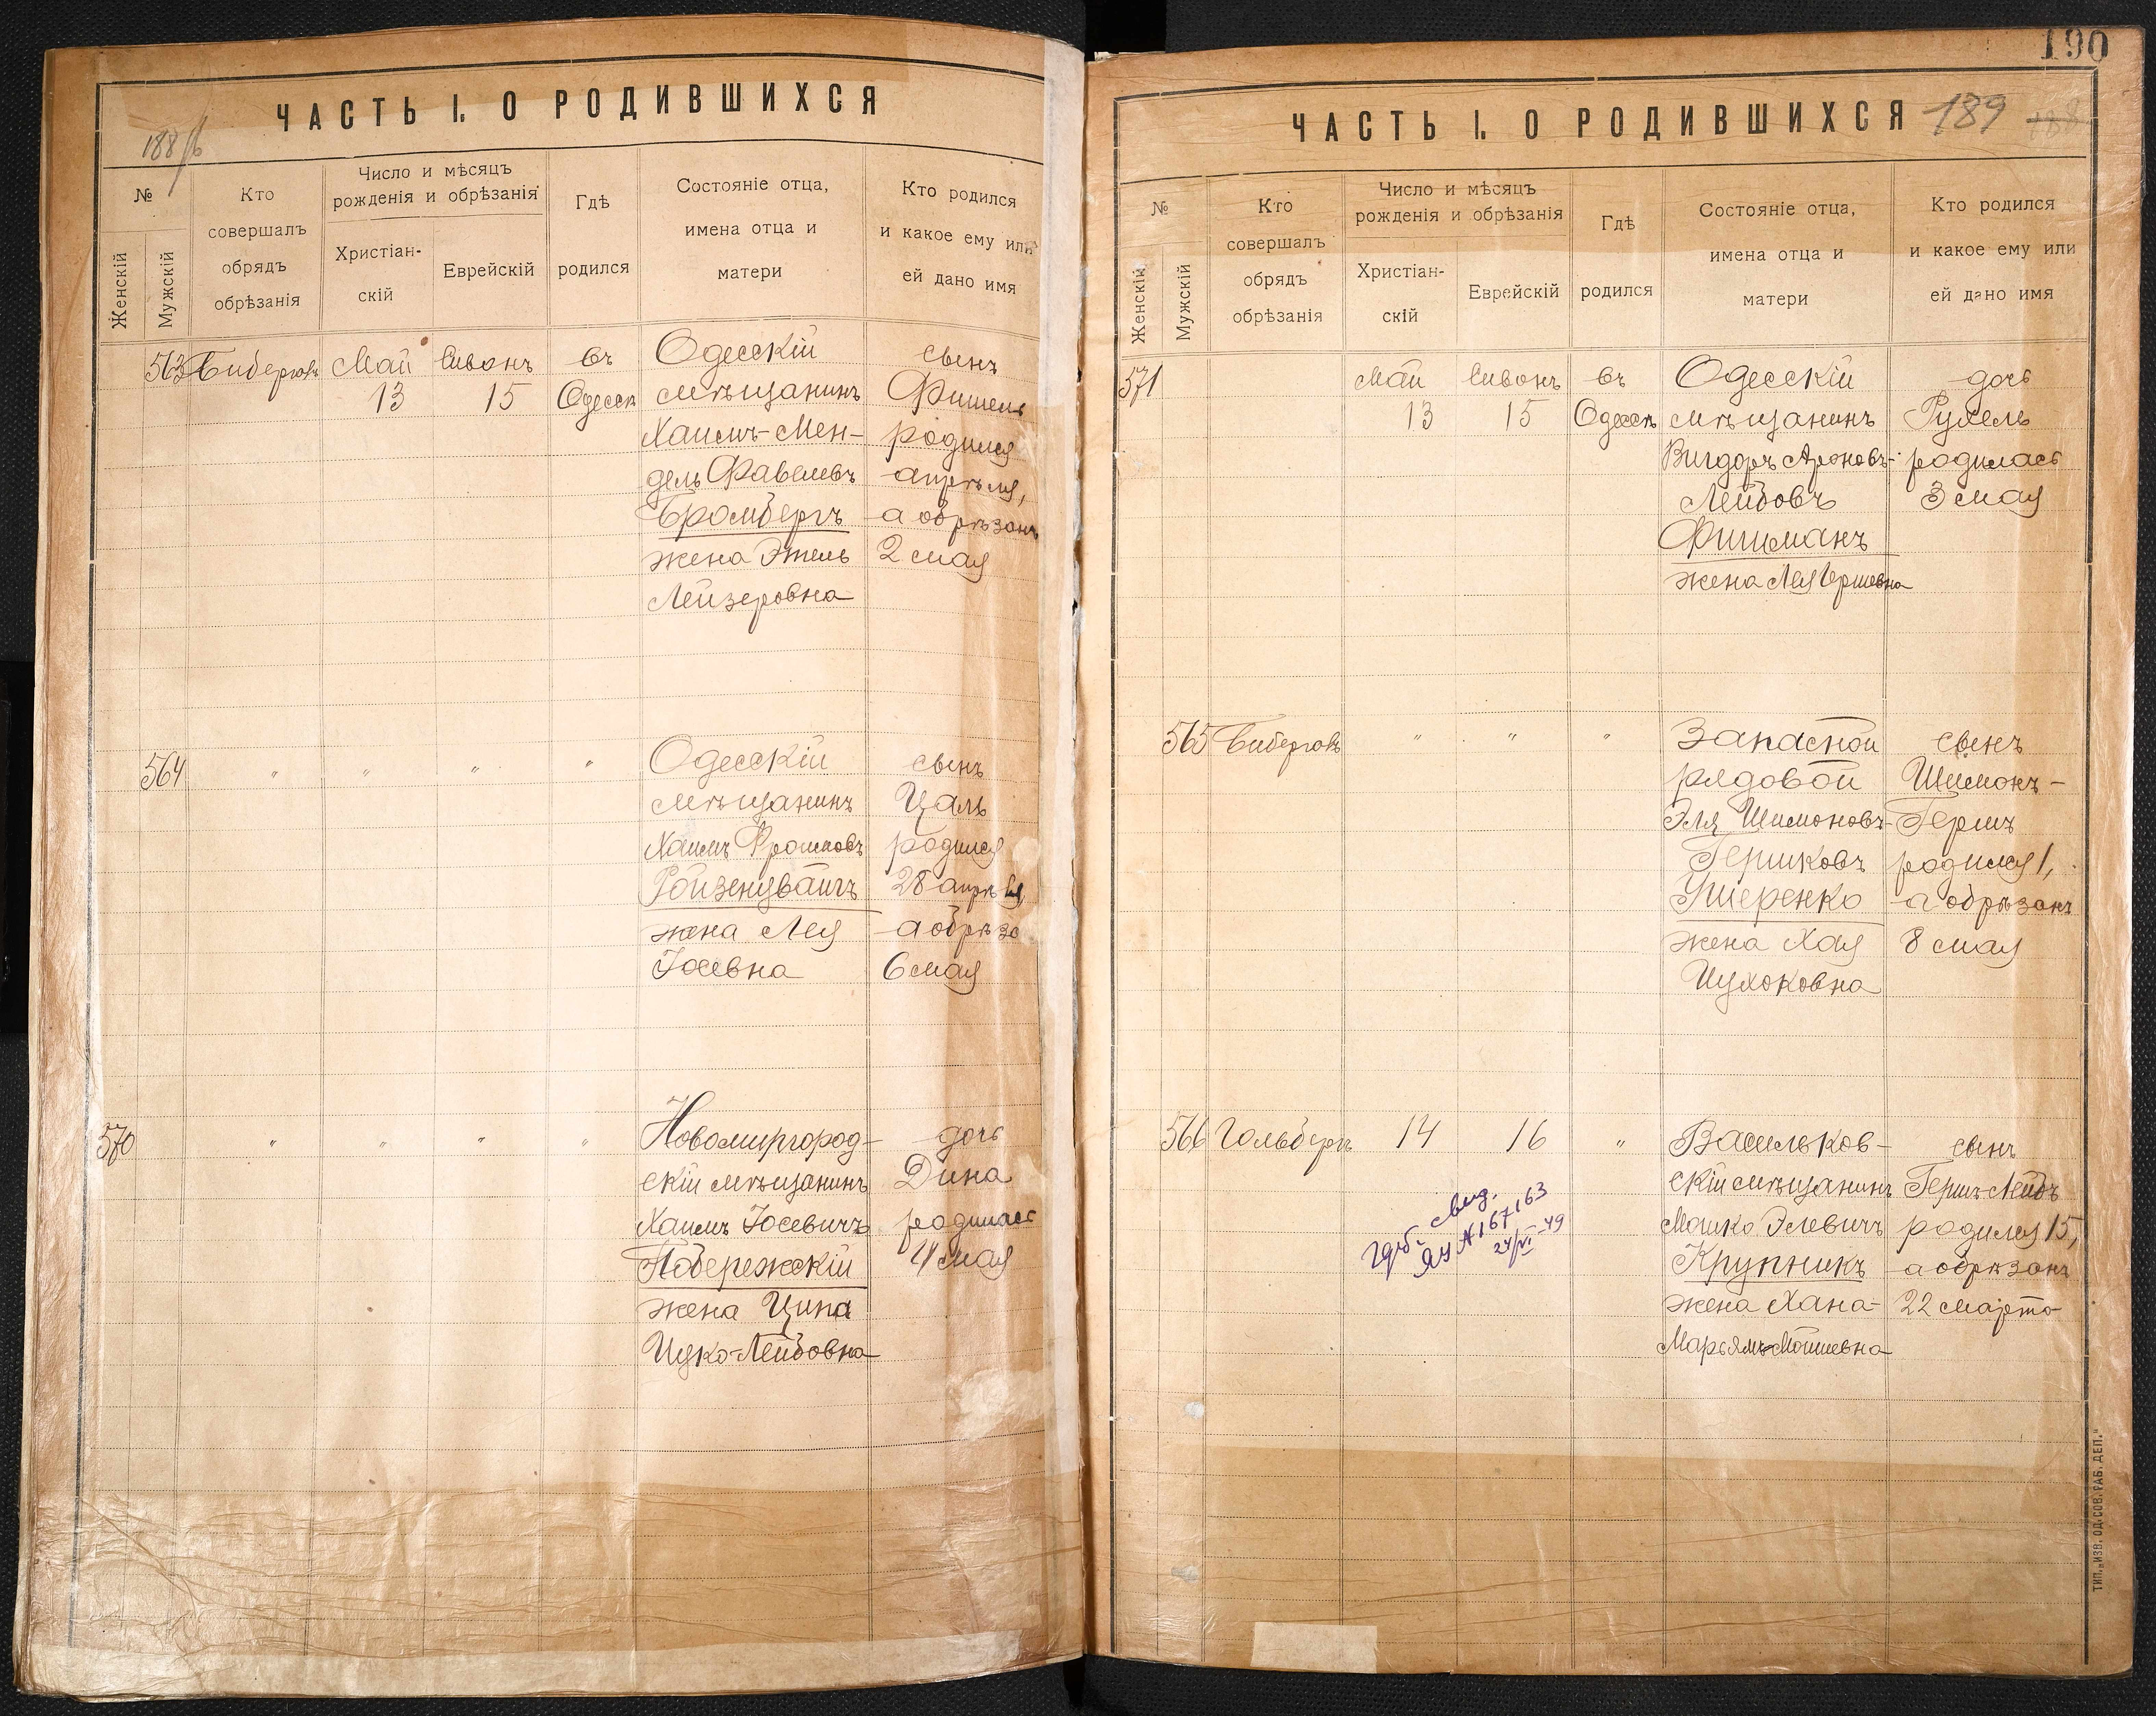 ЧАСТЬ I. О РОДИВШИХСЯ
188
№
Женскій
Мужскій
Кто
совершалъ
обрядъ
обрѣзанія
Число и мѣсяцъ
рожденія и обрѣзанія
Христіан-
скій
Еврейскій
Гдѣ
родился
Состояніе отца,
имена отца и
матери
Кто родился
и какое ему или
ей дано имя
563
Май
13
Сивонъ
15
въ
Одессѣ
Одесскій
мѣщанинъ
Хаимъ-Мен-
дель Фавелевъ
Бромбергъ
жена Этель
Лейзеровна
сынъ
Фишель
родился
апрѣля,
а обрѣзанъ
2 мая
564
" " " "
Одесскій
мѣщанинъ
Хаимъ Фроимовъ
Ройзенцвайгъ
жена Лея
Іосевна
сынъ
Цаль
родился
28 апрѣля,
а обрѣза
6 мая
570
" " " "
Новомиргород-
скій мѣщанинъ
Хаимъ Іосевичъ
Побережскій
жена Ципа
Ицко-Лейбовна
дочь
Дина
родилась
4 мая
190
ЧАСТЬ I. О РОДИВШИХСЯ
189
188
№
Женскій
Мужскій
Кто
совершалъ
обрядъ
обрѣзанія
Число и мѣсяцъ
рожденія и обрѣзанія
Христіан-
скій
Еврейскій
Гдѣ
родился
Состояніе отца,
имена отца и
матери
Кто родился
и какое ему или
ей дано имя
571
Май
13
Сивонъ
15
въ
Одессѣ
Одесскій
мѣщанинъ
Вигдоръ Ароновъ-
Лейбовъ
Фишманъ
жена Лея Гершевна
дочь
Рухель
родилась
3 мая
565
" " "
Запасной
рядовой
Эля Шимоновъ-
Гершковъ
Ушеренко
жена Хая
Ицхоковна
сынъ
Шимонъ-
Гершъ
родился 1,
а обрѣзанъ
8 мая
566
Гольбергъ
14
16
"
Васильков-
скій мѣщанинъ
Мошко Элевичъ
Крупникъ
жена Хана-
Марьямъ-Мойшевна
сынъ
Гершъ-Лейбъ
родился 15,
а обрѣзанъ
22 марта
свид.
ЯУ № 167163
24/VI-49
ТИП. „ИЗВ. ОД. СОВ. РАБ. ДЕП."